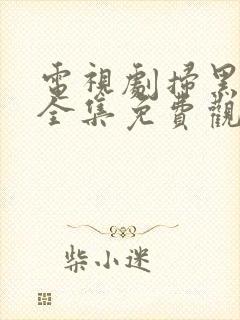 電視劇掃黑
全集免費觀
柴小迷